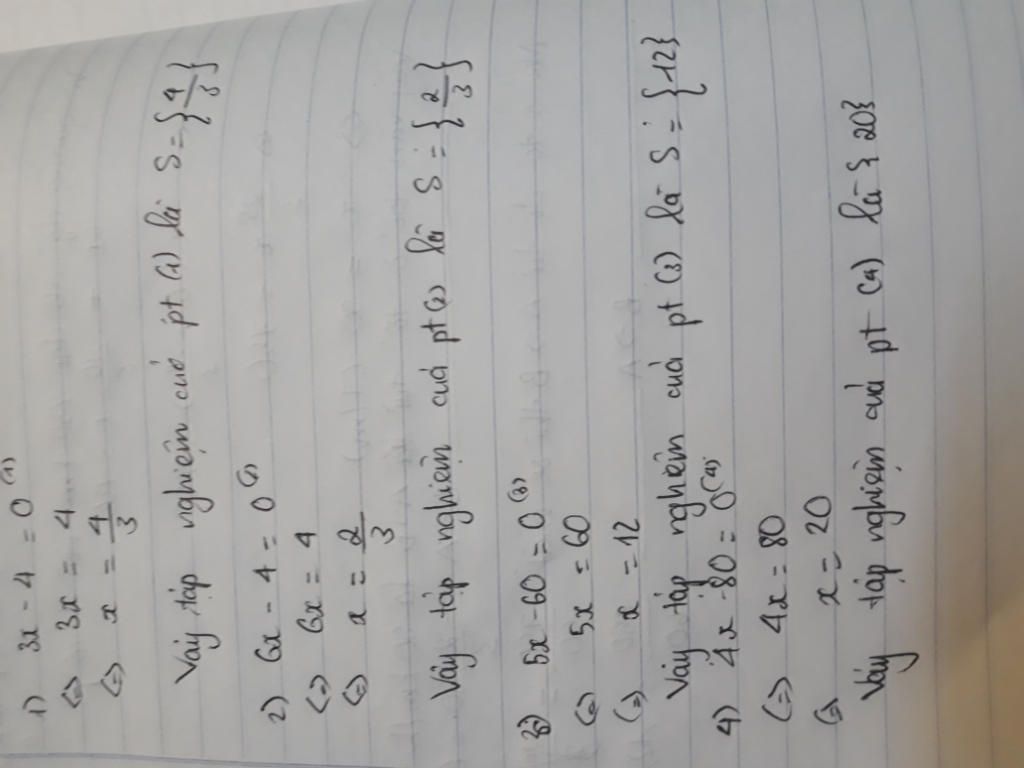 1) 3x - 4 = 0 (1)
(=) 3x = 4
(=) x = 4/3
Vậy tập nghiệm của pt (1) là S = {4/3}
2) 6x - 4 = 0 (2)
(=) 6x = 4
(=) x = 2/3
Vậy tập nghiệm của pt (2) là S = {2/3}
3) 5x - 60 = 0 (3)
(=) 5x = 60
(=) x = 12
Vậy tập nghiệm của pt (3) là S = {12}
4) 4x - 80 = 0 (4)
(=) 4x = 80
(=) x = 20
Vậy tập nghiệm của pt (4) là S { 20}